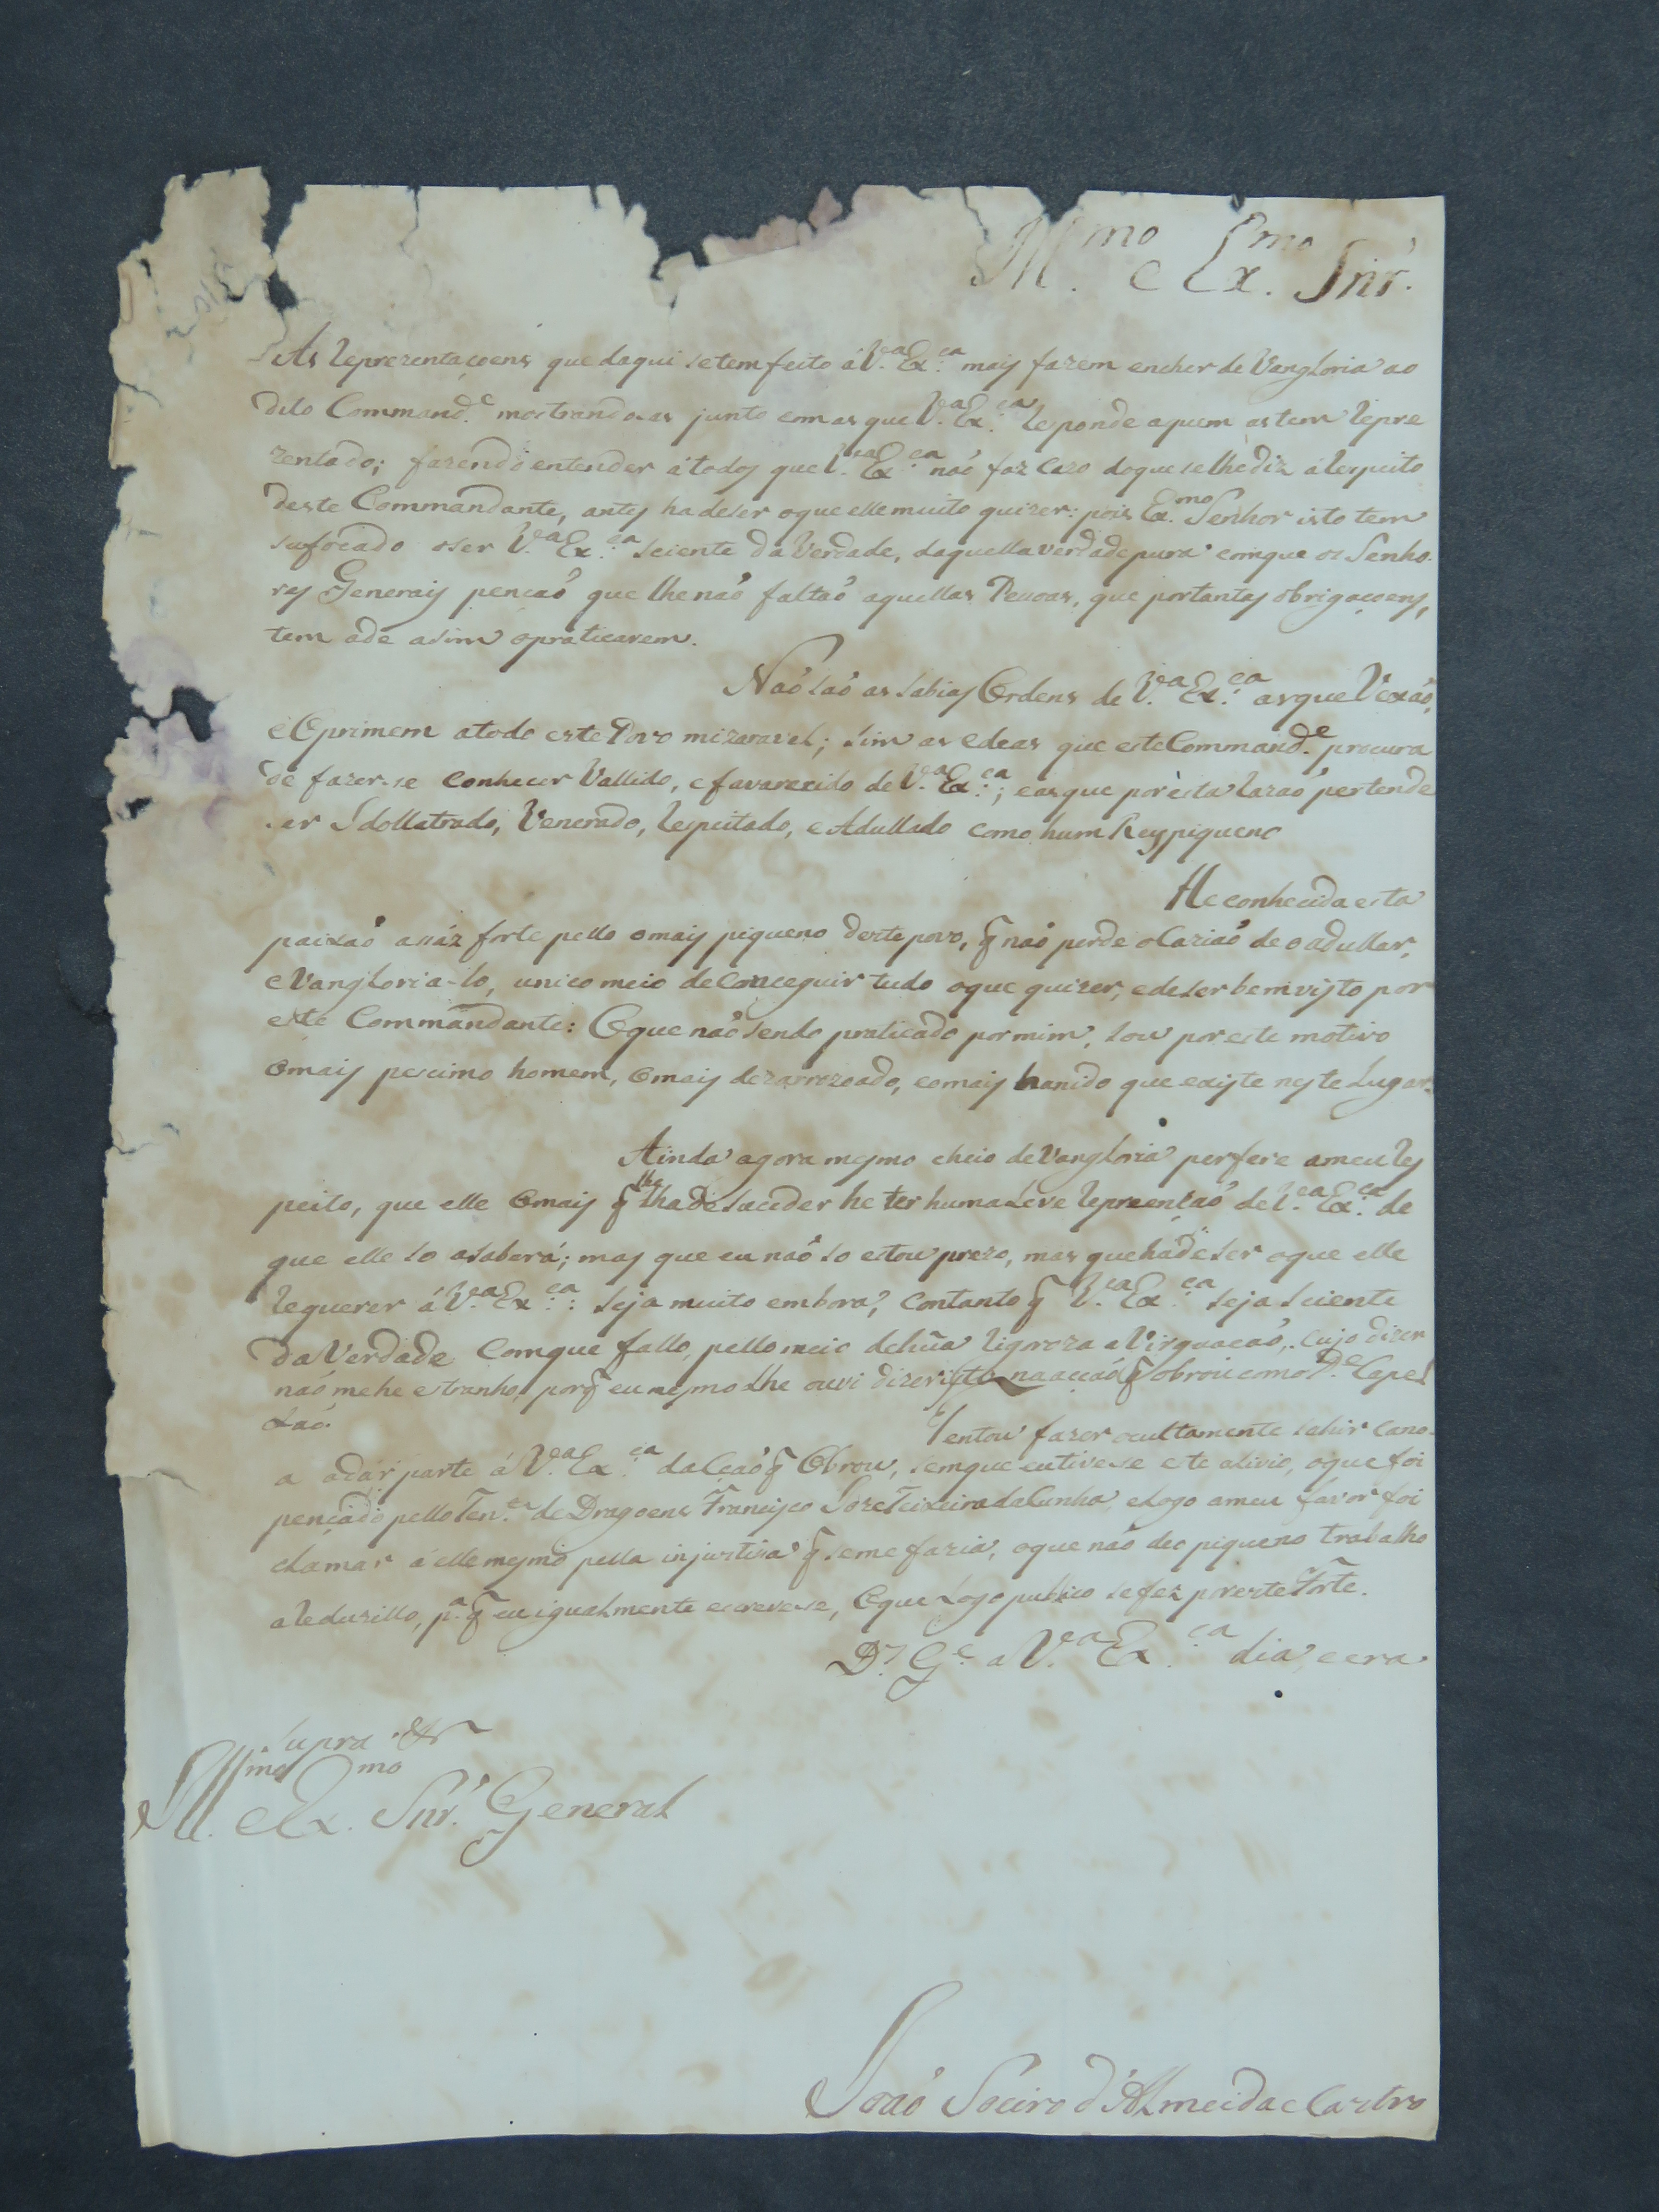 Ill.mo e Ex.mo Snr.
As reprezentaçoens que daqui se tem feito á V.a Ex.ca mais fazem encher de Vangloria ao
dito Command.e mostrando as junto com as que V.a Ex.ca reponde a quem as tem repre
zentado; fazendo entender á todos que V.a Ex.ca naõ faz cazo do que se lhe diz a respeito
deste Commandante, antes ha de ser o que elle muito quizer: pois Ex.mo Senhor isto tem
sufocado o ser V.a Ex.ca sciente da Verdade, daquella verdade pura com que os Senho-
res Generais pençaõ que lhe naõ faltaõ aquellas Pessoas, que por tantas obrigaçoens,
tem a de asim o praticarem.
Naõ saõ as sabias Ordens de V.a Ex.ca as que Vexaõ,
e Oprimem a todo este Povo mizaravel; sim as Ideas que este Command.e procura
de fazer-se conhecer Vallido, e favarecido de V.a Ex.ca; e as que por ésta razaõ pertende
ser Idollatrado, Venerado, respeitado, e Adullado como hum Rey piqueno
He conhecida esta
paixaõ assáz forte pello o mais piqueno deste povo, q̃ naõ perde ocaziaõ de o adullar,
e Vangloria-lo, unico meio de conceguir tudo o que quizer, e de ser bem visto por
este Commandante: O que naõ sendo praticado por mim, sou por este motivo
o mais pescimo homem, o mais dezarrozoado, e o mais banido que existe neste Lugar.
Ainda agora mesmo cheio de Vangloria perfere a meu res
peito, que elle o mais q̃ lhe ha de suceder he ter huma Leve repreençaõ de V.a Ex.ca de
que elle só a saberá; mas que eu naõ só estou prezo, mas que há de ser o que elle
requerer á V.a Ex.ca: seja muito embora, contanto q̃ V.a Ex.ca seja sciente
da Verdade com que fallo, pello meio de hũa rigoroza aVirguaçaõ, cujo dizer
naõ me he estranho, porq̃ eu mesmo lhe ouvi dizer isto na acçaõ q̃ obrou com o d.e Capel
Laõ.
Tentou fazer ocultamente sahir cano-
a a dár parte á V.a Ex.ca da Cçaõ q̃ Obrou, sem que eu tivesse este alivio, o que foi
pençado pello Ten.te de Dragoens Francisco Joze Teixeira da Cunha, e Logo a meu favor foi
clamar á elle mesmo pella injustiça q̃ se me fazia, o que naõ deo piqueno trabalho
a reduzillo, p.a q̃ eu igualmente escrevesse, O que Logo publico se fez por este Forte.
D.s G.e a V.a Ex.ca dia, e era
supra &
Ill.mo e Ex.mo Snr. General
Joaõ Soeiro d'Almeida e Castro